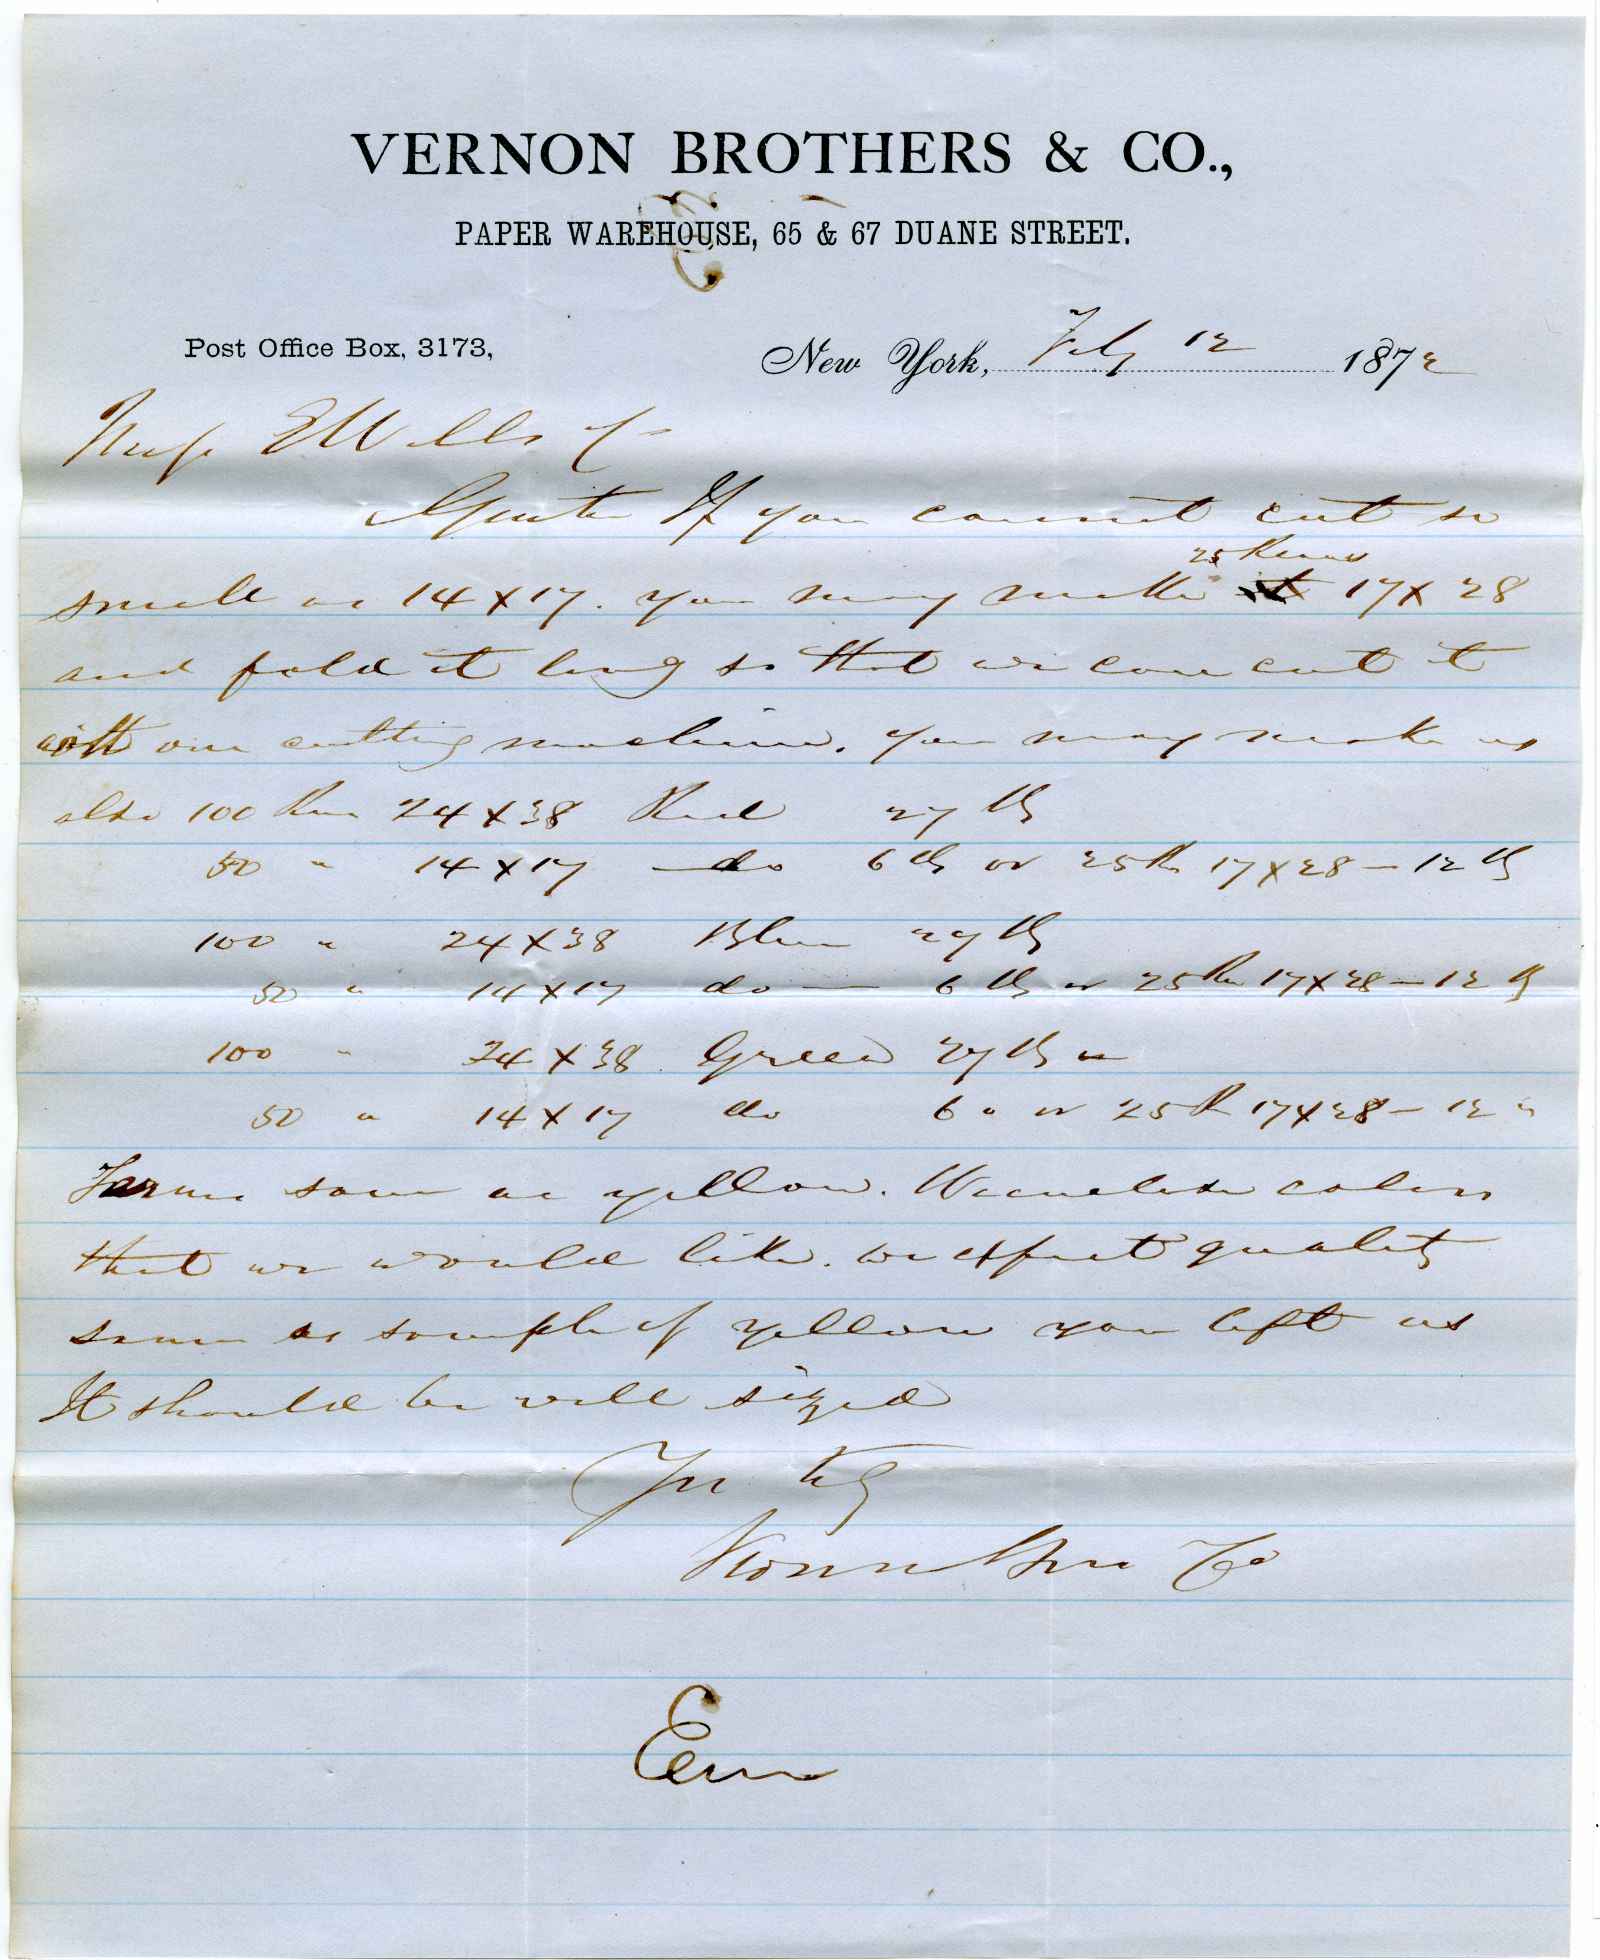 VERNON BROTHERS & CO.,
PAPER WAREHOUSE, 65 & 67 DUANE STREET.
Post Office Box, 3173,
New York, Feby 12 1872
Messrs E Wells Co
Gents If you cannot cut so
25 Reams
small as 14 X 17. you may make it 17 X 28
and fold it long so that we can cut it
with our cutting machine. You may make us
also 100 Rms 24 X 38 Red 27 lb
50 " 14 X 17 do 6 lb or 25 Rm 17 X 28 — 12 lb
100 " 24 X 38 Blue 27 lb
50 " 14 X 17 do — 6 lb or 25 Rm 17 X 28 — 12 lb
100 " 24 X 38 Green 27 lb
50 " 14 X 17 do 6 " or 25 R 17 X 28 — 12 "
Terms same as yellow. We enclose colors
that we would like. we expect quality
same as sample of yellow you left us
It should be well sized
Yrs try
Vernon Bros Co